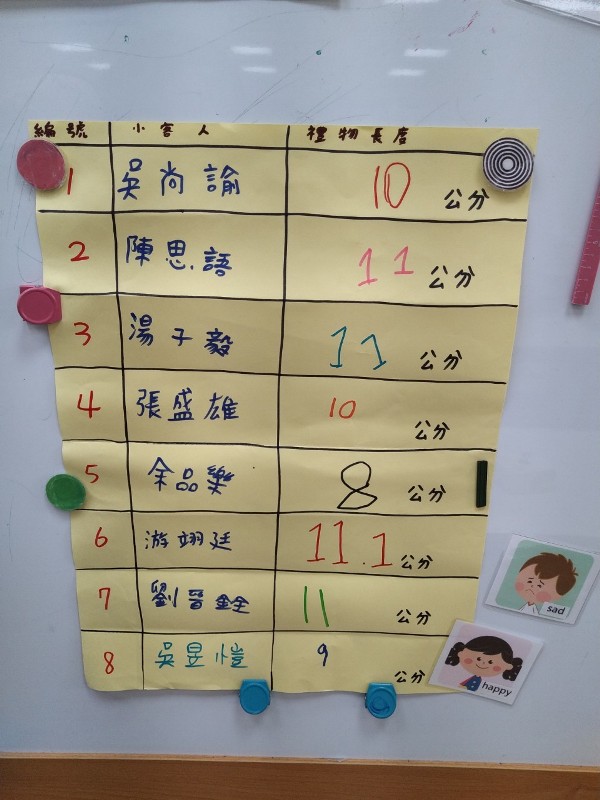 編號 小客人 禮物長度
1 吳尚諭 10 公分
2 陳思語 11 公分
3 湯子毅 11 公分
4 張盛雄 10 公分
5 余品樂 8 公分
6 游翊廷 11.1 公分
7 劉晉銓 11 公分
8 吳昱愷 9 公分
sad
happy